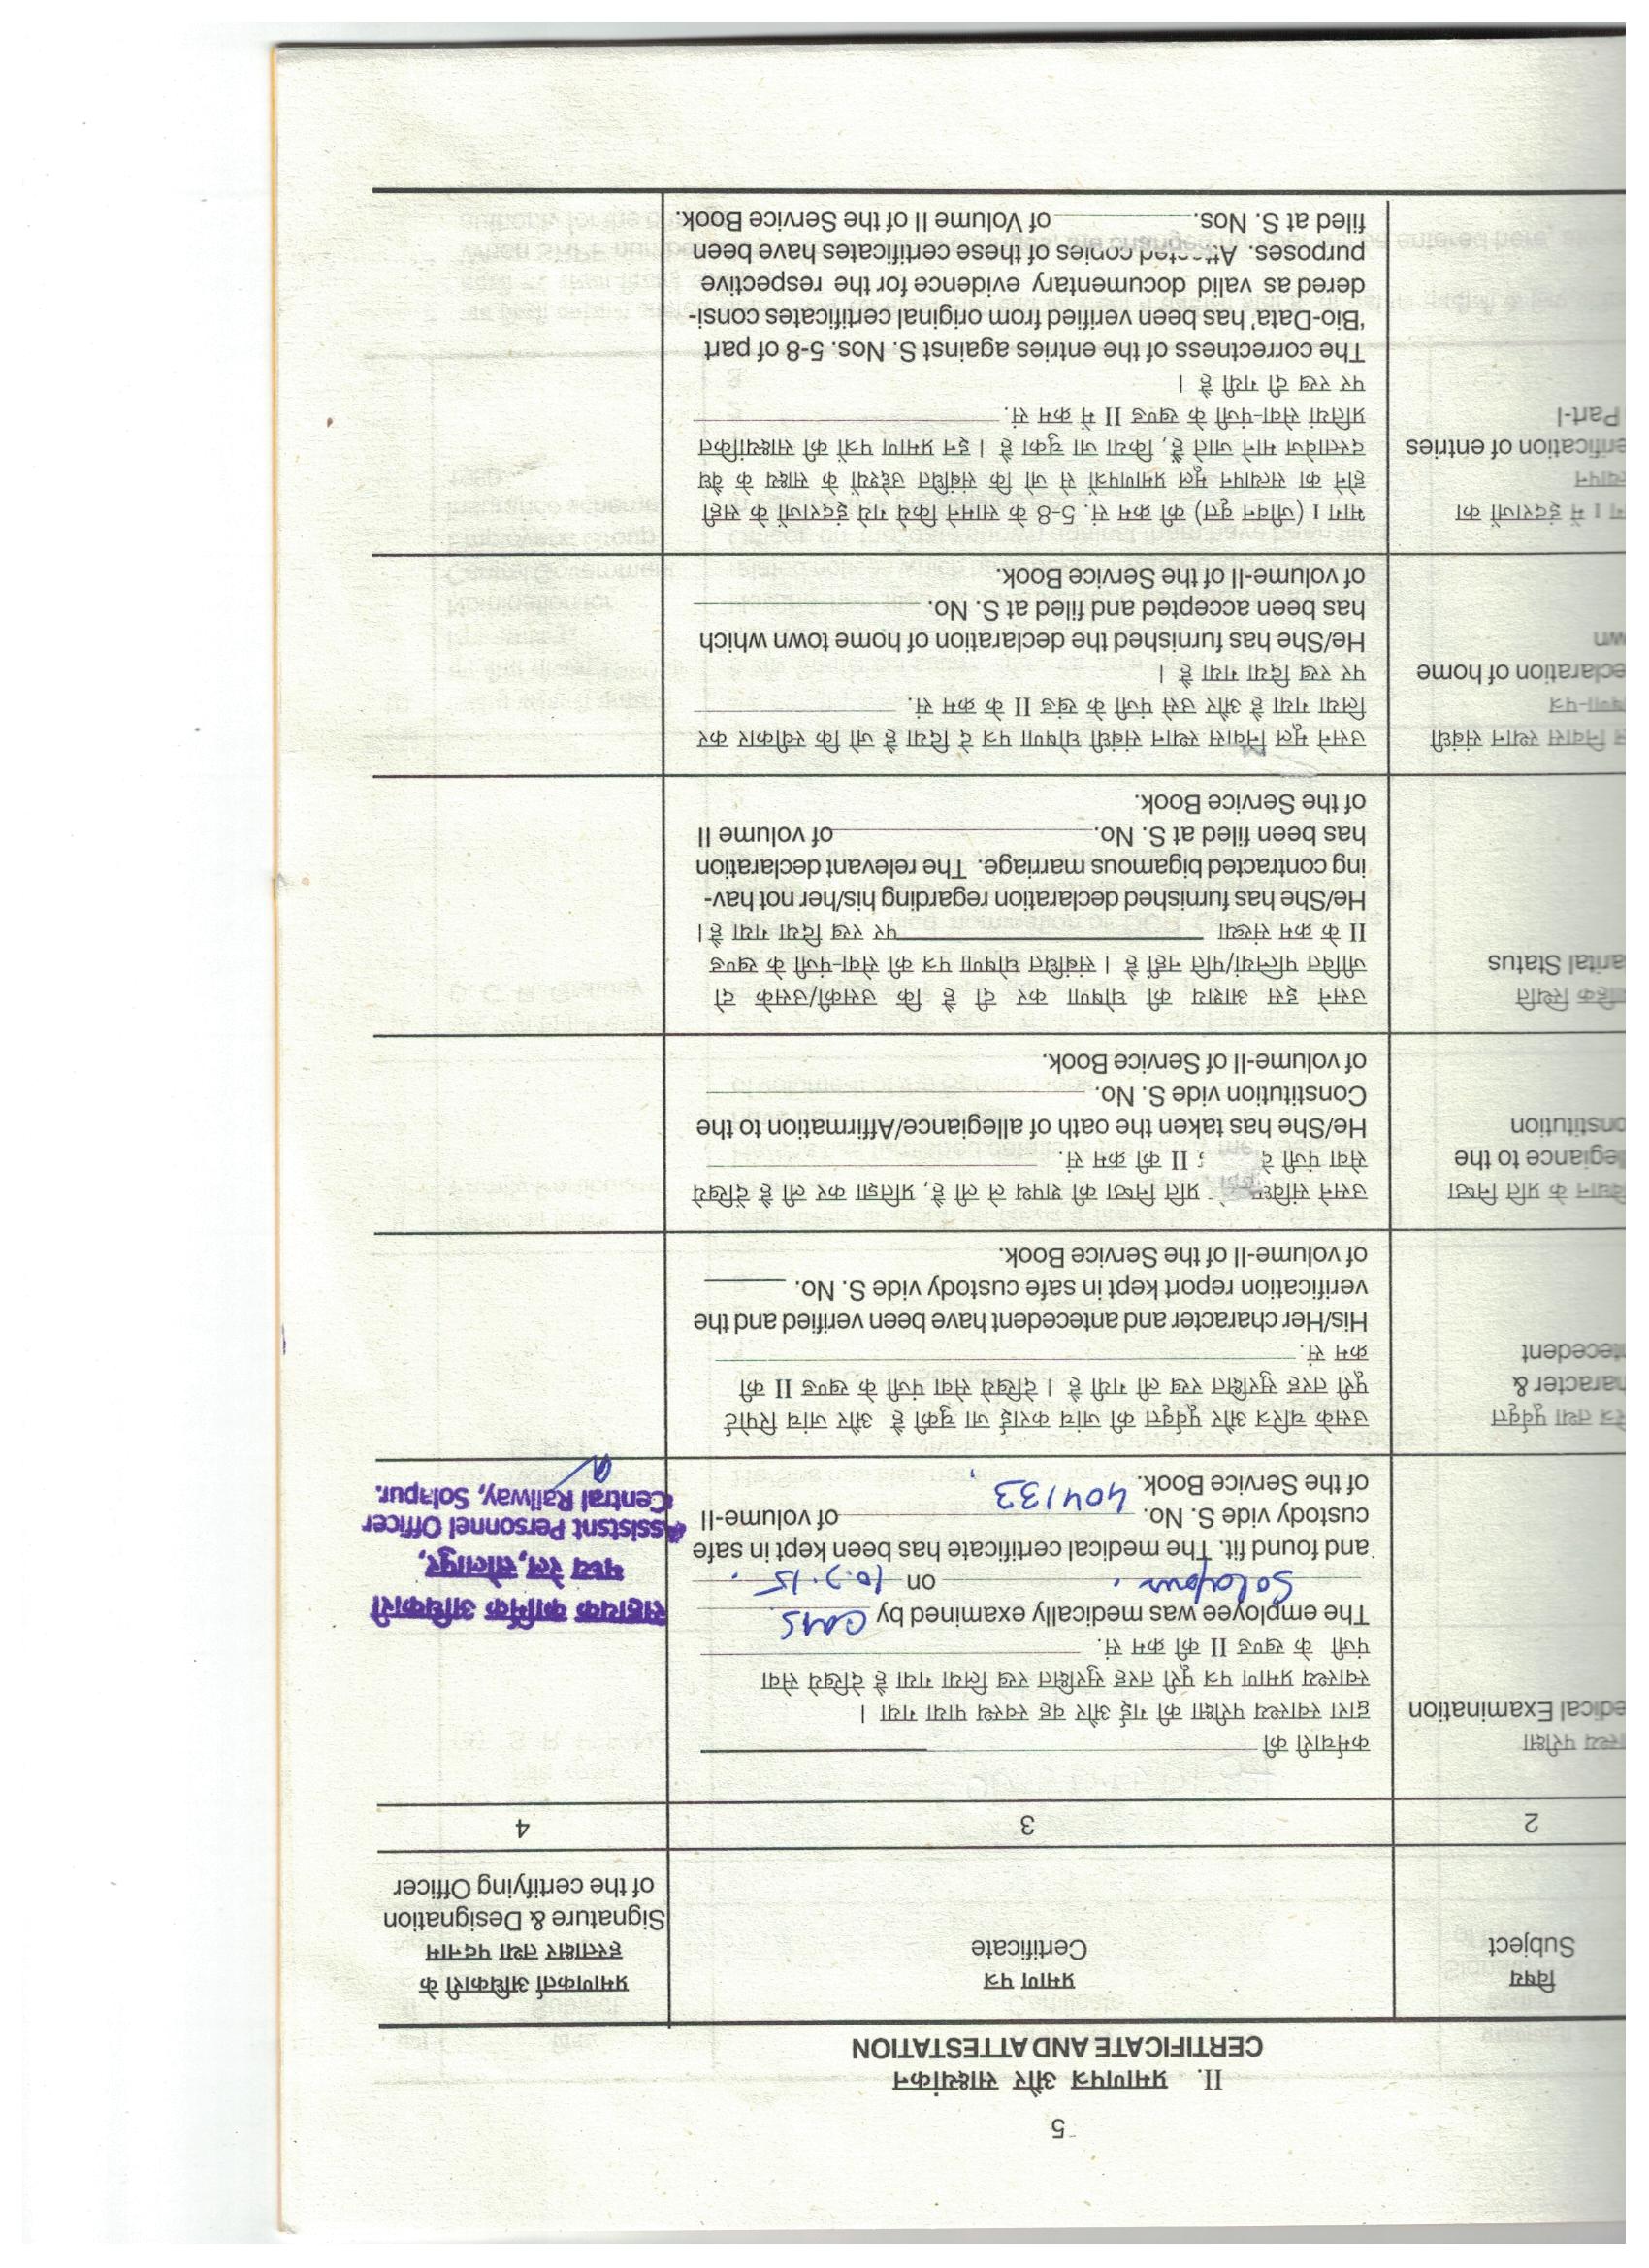 5
II. प्रमाणपत्र और साक्ष्यांकन
CERTIFICATE AND ATTESTATION
विषय
Subject
प्रमाण पत्र
Certificate
प्रमाणकर्ता अधिकारी के
हस्ताक्षर तथा पदनाम
Signature & Designation
of the certifying Officer
2
3
4
स्थ्य परीक्षा
edical Examination
कर्मचारी की
द्वारा स्वास्थ्य परीक्षा की गई और वह स्वस्थ पाया गया ।
स्वास्थ्य प्रमाण पत्र पूरी तरह सुरक्षित रख लिया गया है देखिये सेवा
पंजी के खण्ड II की क्रम सं.
The employee was medically examined by CMS
Solapur. on 10.7.15.
and found fit. The medical certificate has been kept in safe
custody vide S. No. 404133 of volume-II
of the Service Book.
सहायक कार्मिक अधिकारी
मध्य रेल, सोलापुर,
Assistsnt Personnel Officer
Central Railway, Solapur.
रित्र तथा पूर्ववृत्त
haracter &
ntecedent
उसके चरित्र और पूर्ववृत्त की जांच कराई जा चुकी है और जांच रिपोर्ट
पूरी तरह सुरक्षित रख ली गयी है । देखिये सेवा पंजी के खण्ड II की
क्रम सं.
His/Her character and antecedent have been verified and the
verification report kept in safe custody vide S. No.
of volume-II of the Service Book.
विधान के प्रति निष्ठा
legiance to the
onstitution
उसने संविध प्रति निष्ठा की शपथ ले ली है, प्रतिज्ञा कर ली है देखिये
सेवा पंजी दे II की क्रम सं.
He/She has taken the oath of allegiance/Affirmation to the
Constitution vide S. No.
of volume-II of Service Book.
वाहिक स्थिति
arital Status
उसने इस आशय की घोषणा कर दी है कि उसकी/उसके दो
जीवित पत्नियां/पति नहीं है । संबंधित घोषणा पत्र की सेवा-पंजी के खण्ड
II के क्रम संख्या पर रख दिया गया है।
He/She has furnished declaration regarding his/her not hav-
ing contracted bigamous marriage. The relevant declaration
has been filed at S. No. of volume II
of the Service Book.
ल निवास स्थान संबंधी
षणा-पत्र
eclaration of home
wn
उसने मूल निवास स्थान संबंधी घोषणा पत्र दे दिया है जो कि स्वीकार कर
लिया गया है और उसे पंजी के खंड II के क्रम सं.
पर रख दिया गया है ।
He/She has furnished the declaration of home town which
has been accepted and filed at S. No.
of volume-II of the Service Book.
ग I में इंदराजों का
त्यापन
erification of entries
Part-I
भाग I (जीवन वृत्त) की क्रम सं. 5-8 के सामने किये गये इंदराजों के सही
होने का सत्यापन मूल प्रमाणपत्रों से जो कि संबंधित उद्देश्यों के साक्ष्य के वैध
दस्तावेज माने जाते हैं, किया जा चुका है । इन प्रमाण पत्रों की साक्ष्यांकित
प्रतियां सेवा-पंजी के खण्ड II में क्रम सं.
पर रख दी गयी है ।
The correctness of the entries against S. Nos. 5-8 of part
'Bio-Data' has been verified from original certificates consi-
dered as valid documentary evidence for the respective
purposes. Attested copies of these certificates have been
filed at S. Nos. of Volume II of the Service Book.